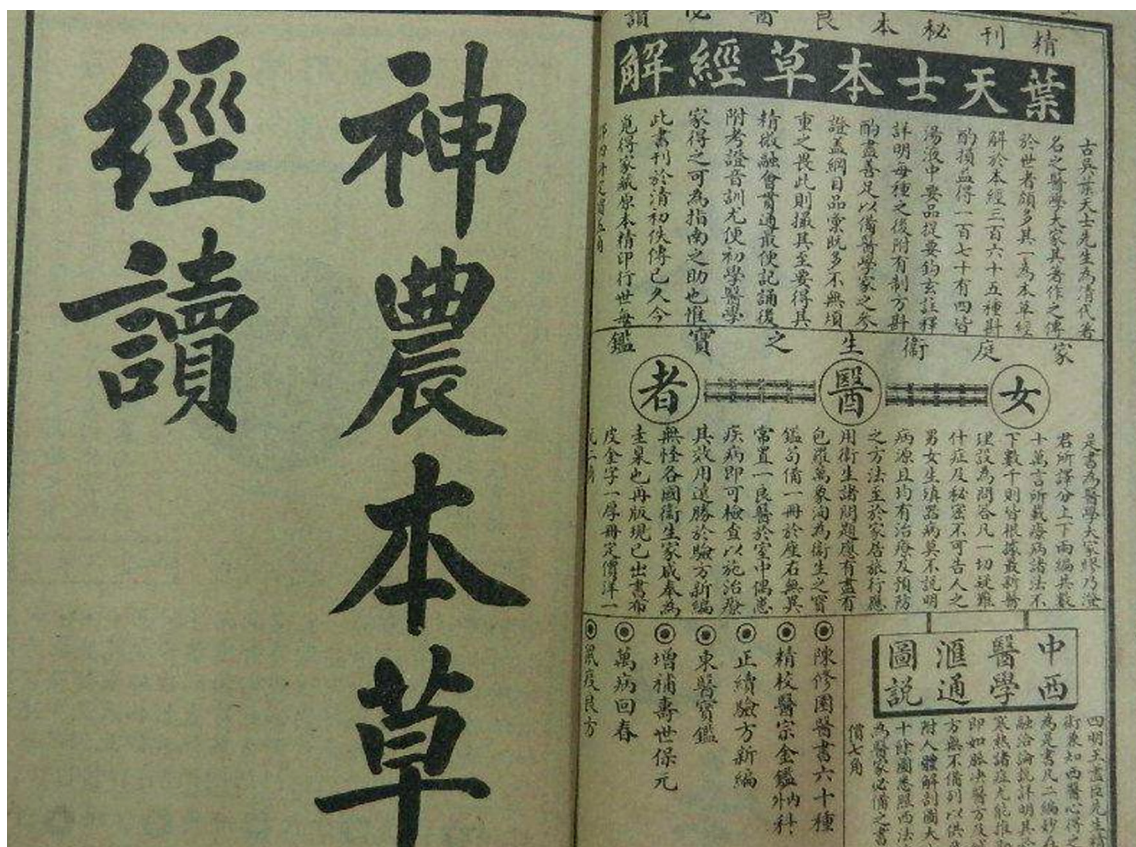 精刊秘本良醫必讀
葉天士本草經解
古吳葉天士先生為清代著
名之醫學大家其著作之傳
於世者頗多其一為本草經
解於本經三百六十五種斟
酌損益得一百七十有四皆
湯液中要品提要鈎玄註釋
詳明每種之後附有制方斟
酌盡善足以備醫學家之參
證蓋綱目品彙既多不無煩
重之畏此則撮其至要得其
精微融會貫通最便記誦後
附考證音訓尤便初學醫學
家得之可為指南之助也惟
此書刊於清初佚傳已久今
覓得家藏原本精印行世每
家庭衛生之寶鑑
女醫者
是書為醫學大家繆乃澄
君所譯分上下兩編共數
十萬言所載療病諸法不
下數千則皆根據最新醫
理設為問答凡一切疑難
什症及秘密不可告人之
男女生殖器病莫不說明
病源且均有治療及預防
之方法至於家居旅行應
用衛生諸問題應有盡有
包羅萬象洵為衛生之寶
鑑苟備一冊於座右無異
常置一良醫於室中偶患
疾病即可檢查以施治療
其效用遠勝於驗方新編
無怪各國衛生家咸奉為
圭臬也再版現已出書布
皮金字一厚冊定價洋一
中西
醫學
滙通
圖説
四明王盡臣先生精
術兼知西醫心得之
為是書凡二編妙在
融洽論説詳明其於
寒熱諸症尤能推
即如脉决醫方及
方無不備列以供
附人體解剖圖大
十餘圖悉照西法
為醫家必備之書
價七角
陳修園醫書六十種
精校醫宗金鑑內外科
正續驗方新編
東醫寶鑑
增補壽世保元
萬病回春
鼠疫良方
神農本草
經讀